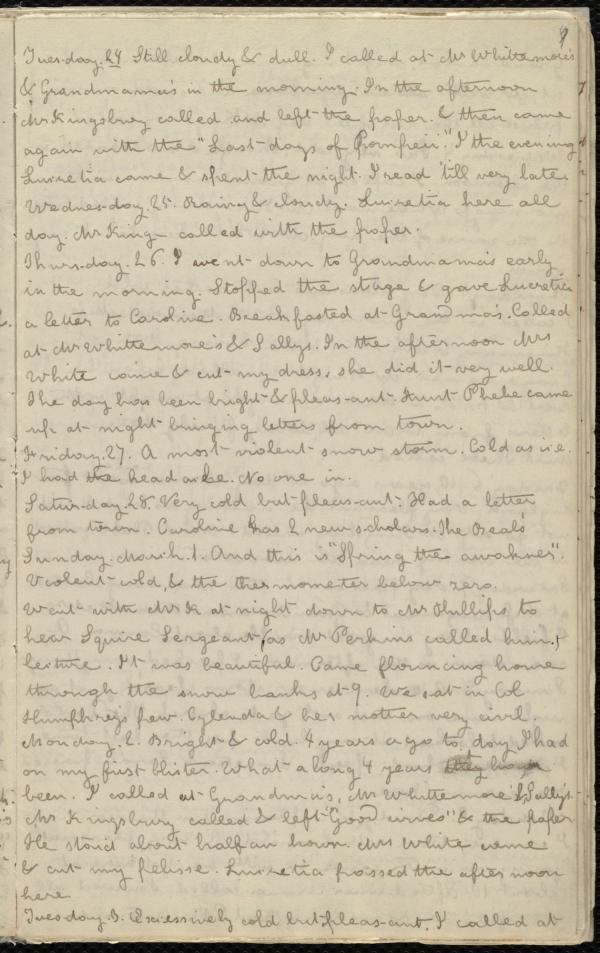 9
Tuesday. 24 Still cloudy & dull. I called at Mr Whittemore's
& Grandmama's in the morning. In the afternoon
Mr Kingsbury called and left the paper. & then came
again with the "Last days of Pompeii." I the evening
Lucretia came & spent the night. I read 'till very late.
Wednesday. 25. Rainy & cloudy. Lucretia here all
day. Mr King- called with the paper.
Thursday. 26. I went down to Grandmama's early
in the morning. Stopped the stage & gave Lucretia
a letter to Caroline. Breakfasted at Grandma's. Called
at Mr Whittemore's & Sallys. In the afternoon Mrs
White came & cut my dress, she did it very well.
The day has been bright & pleasant. Aunt Phebe came
up at night bringing letters from town.
Friday. 27. A most violent snow storm. Cold as ice.
I had the head ache. No one in.
Saturday. 28. Very cold but pleasant. Had a letter
from town. Caroline has 2 new scholars. The Beals
Sunday. March. 1. And this is "Spring the awakner".
Violent cold, & the thermometer below zero.
Went with Mr K at night down to Mr Phillips to
hear Squire Sergeant (as Mr Perkins called him)
lecture. It was beautiful. Came flouncing home
through the snow banks at 9. We sat in Col
Humphreys pew. Cylenda & her mother very civil.
Monday. 2. Bright & cold. 4 years ago to day I had
on my first blister. What a long 4 years they have
been. I called at Grandma's, Mr Whittemore's & Sally's.
Mr Kingsbury called & left "Good wives" & the paper
He staid about half an hour. Mrs White came
& cut my pelisse. Lucretia passed the afternoon
here
Tuesday. 3. Excessively cold but pleasant. I called at